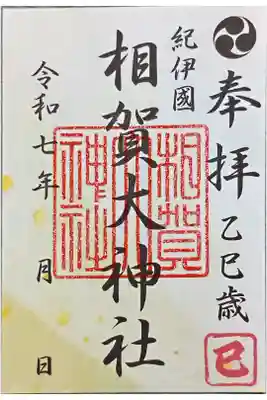 奉拝 乙巳歳
巳
紀伊國
相賀大神社
相賀
神社
令和七年 月 日